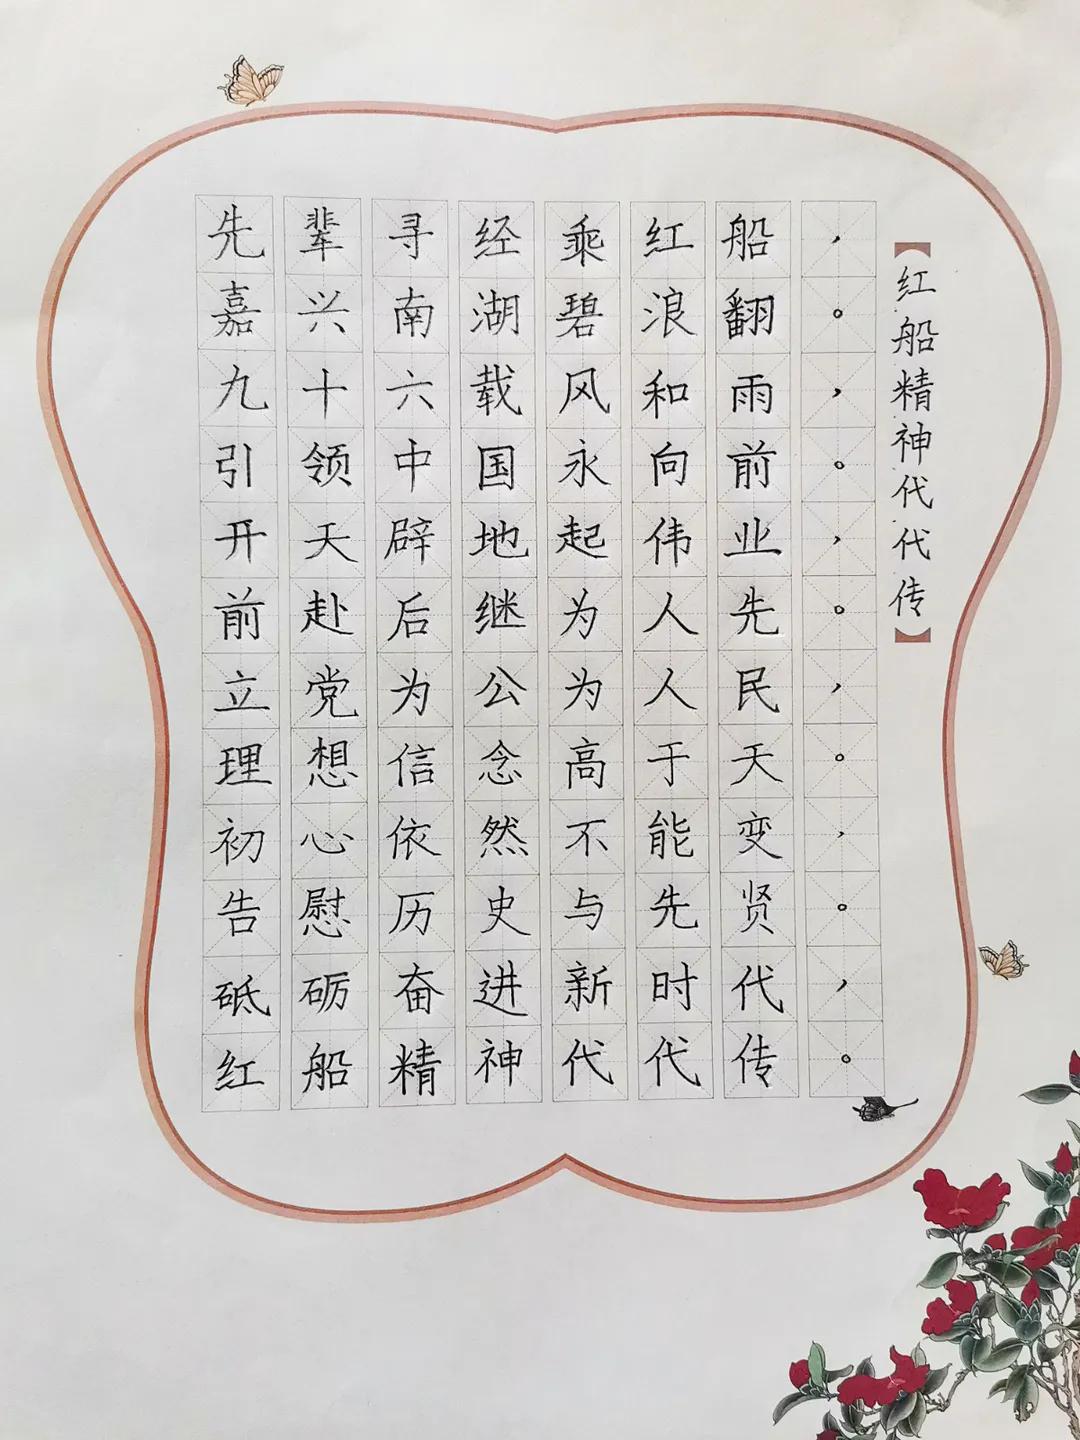 【红船精神代代传】
先辈寻经乘红船，
嘉兴南湖碧浪翻。
九十六载风和雨，
引领中国永向前。
开天辟地起伟业，
前赴后继为人先。
立党为公为人民，
理想信念高于天。
初心依然不能变，
告慰历史与先贤。
砥砺奋进新时代，
红船精神代代传。